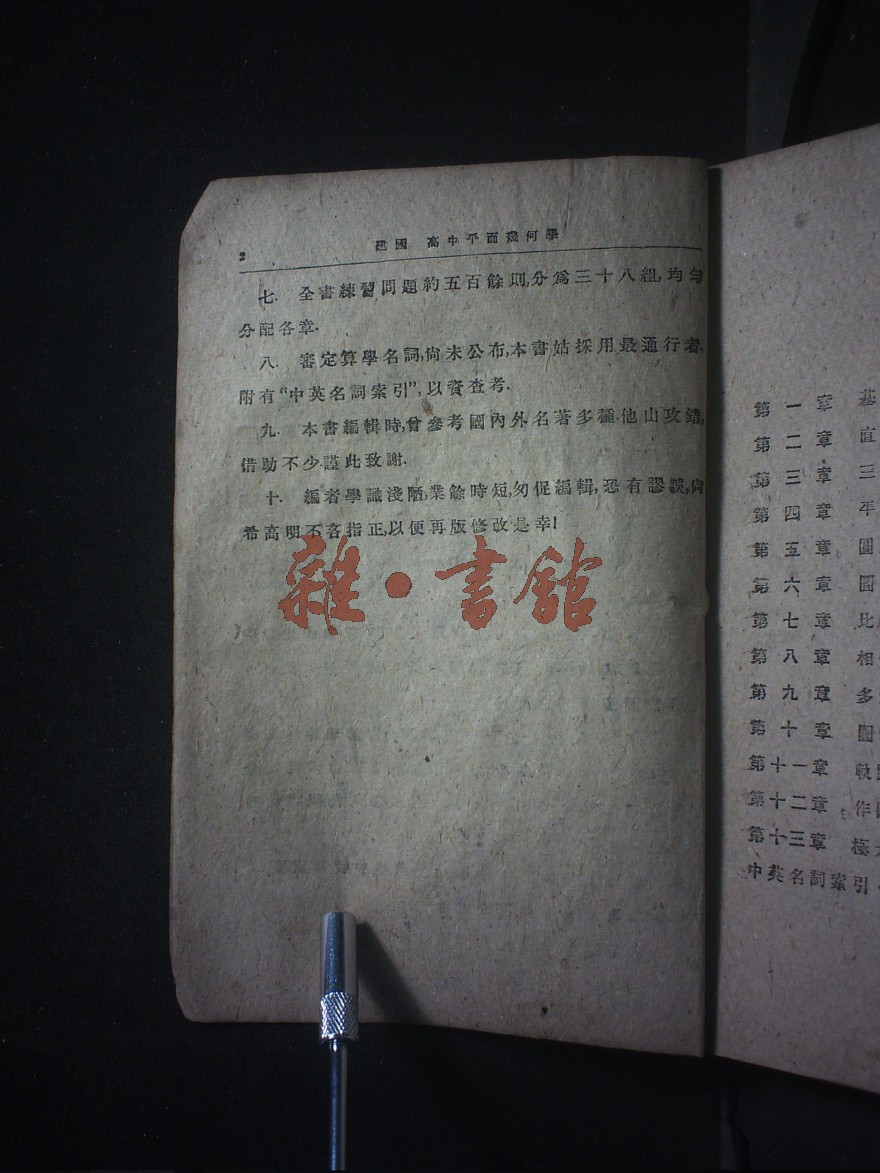 2
建國 高中平面幾何學
七. 全書練習問題約五百餘則,分爲三十八組,均勻
分配各章.
八. 審定算學名詞,尚未公布,本書姑採用最通行者.
附有“中英名詞索引”,以資查考.
九. 本書編輯時,曾參考國內外名著多種.他山攻錯,
借助不少.謹此致謝.
十. 編者學識淺陋,業餘時短,匆促編輯,恐有謬誤,尚
希高明不吝指正,以便再版修改是幸!
雜·書館
第一章 基
第二章 直
第三章 三
第四章 平
第五章 圓
第六章 圓
第七章 比
第八章 相
第九章 多
第十章 圓
第十一章 軌
第十二章 作
第十三章 極
中英名詞索引